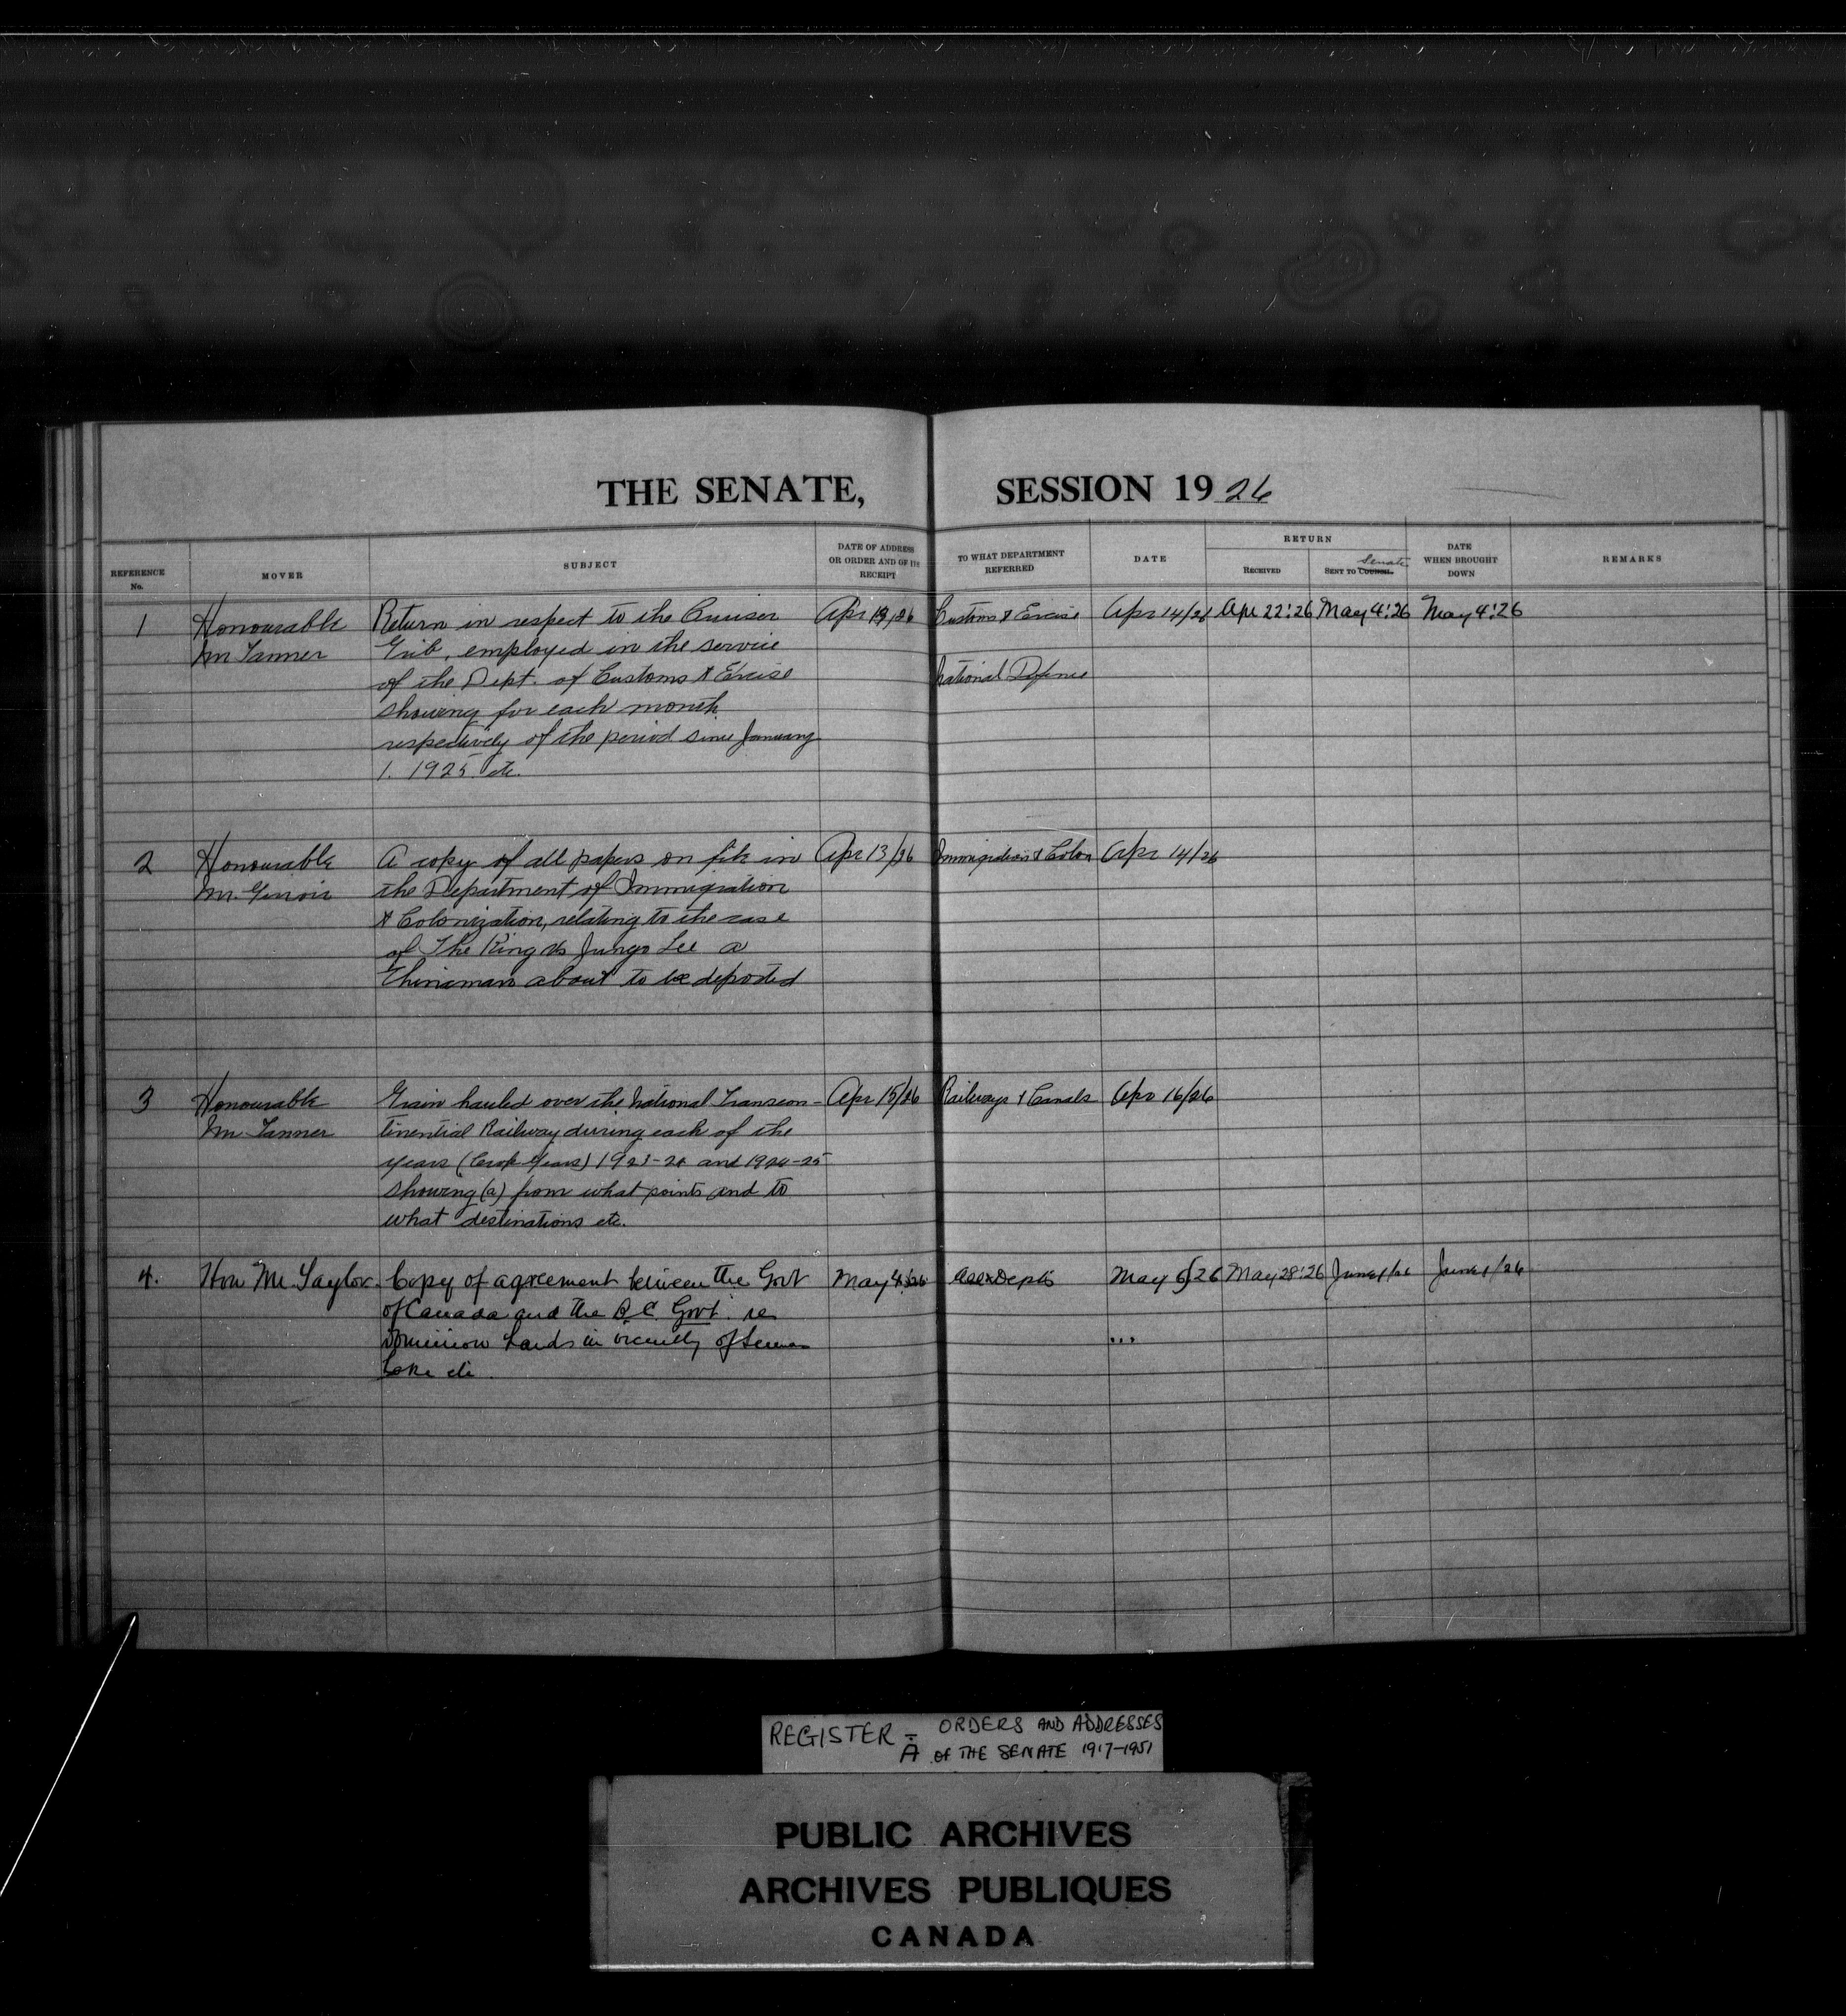 THE SENATE, SESSION 1926
REFERENCE No.
MOVER
SUBJECT
DATE OF ADDRESS OR ORDER AND OF ITS RECEIPT
TO WHAT DEPARTMENT REFERRED
DATE
RETURN
RECEIVED
SENT TO COUNCIL. Senate
DATE WHEN BROUGHT DOWN
REMARKS
1 Honourable Return in respect to the Cruiser Apr 13/26 Customs & Excise Apr 14/26 Apr 22:26 May 4:26 May 4:26
Mr Tanner Grib, employed in the service
of the Dept. of Customs & Excise National Defence
showing for each month
respectively of the period since January
1. 1925 etc.
2 Honourable A copy of all papers on file in Apr 13/26 Immigration & Colon Apr 14/26
Mr. the Department of Immigration
& Colonization, relating to the case
of The King vs Lee a
Chinaman about to be deported
3 Honourable Grain hauled over the National Transcon- Apr 15/26 Railways & Canals Apr 16/26
Mr Tanner tinental Railway during each of the
years (Crop Years) 1923-24 and 1924-25
showing (a) from what points and to
what destinations etc.
4. Hon Mr. Taylor. Copy of agreement between the Govt May 4:26 Depts May 6/26 May 28:26 June 1/26 June 1/26
of Canada and the B.C. Govt. re
Dominion Lands in vicinity of
Lake etc.
REGISTER - A ORDERS AND ADDRESSES
OF THE SENATE 1917-1951
PUBLIC ARCHIVES
ARCHIVES PUBLIQUES
CANADA